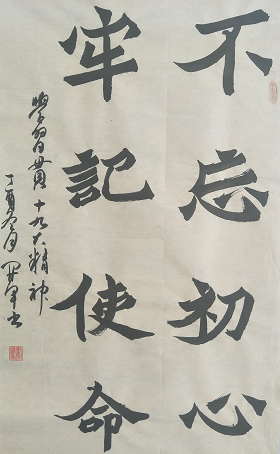 不忘初心
牢記使命
學習貫十九大精神
丁酉冬月